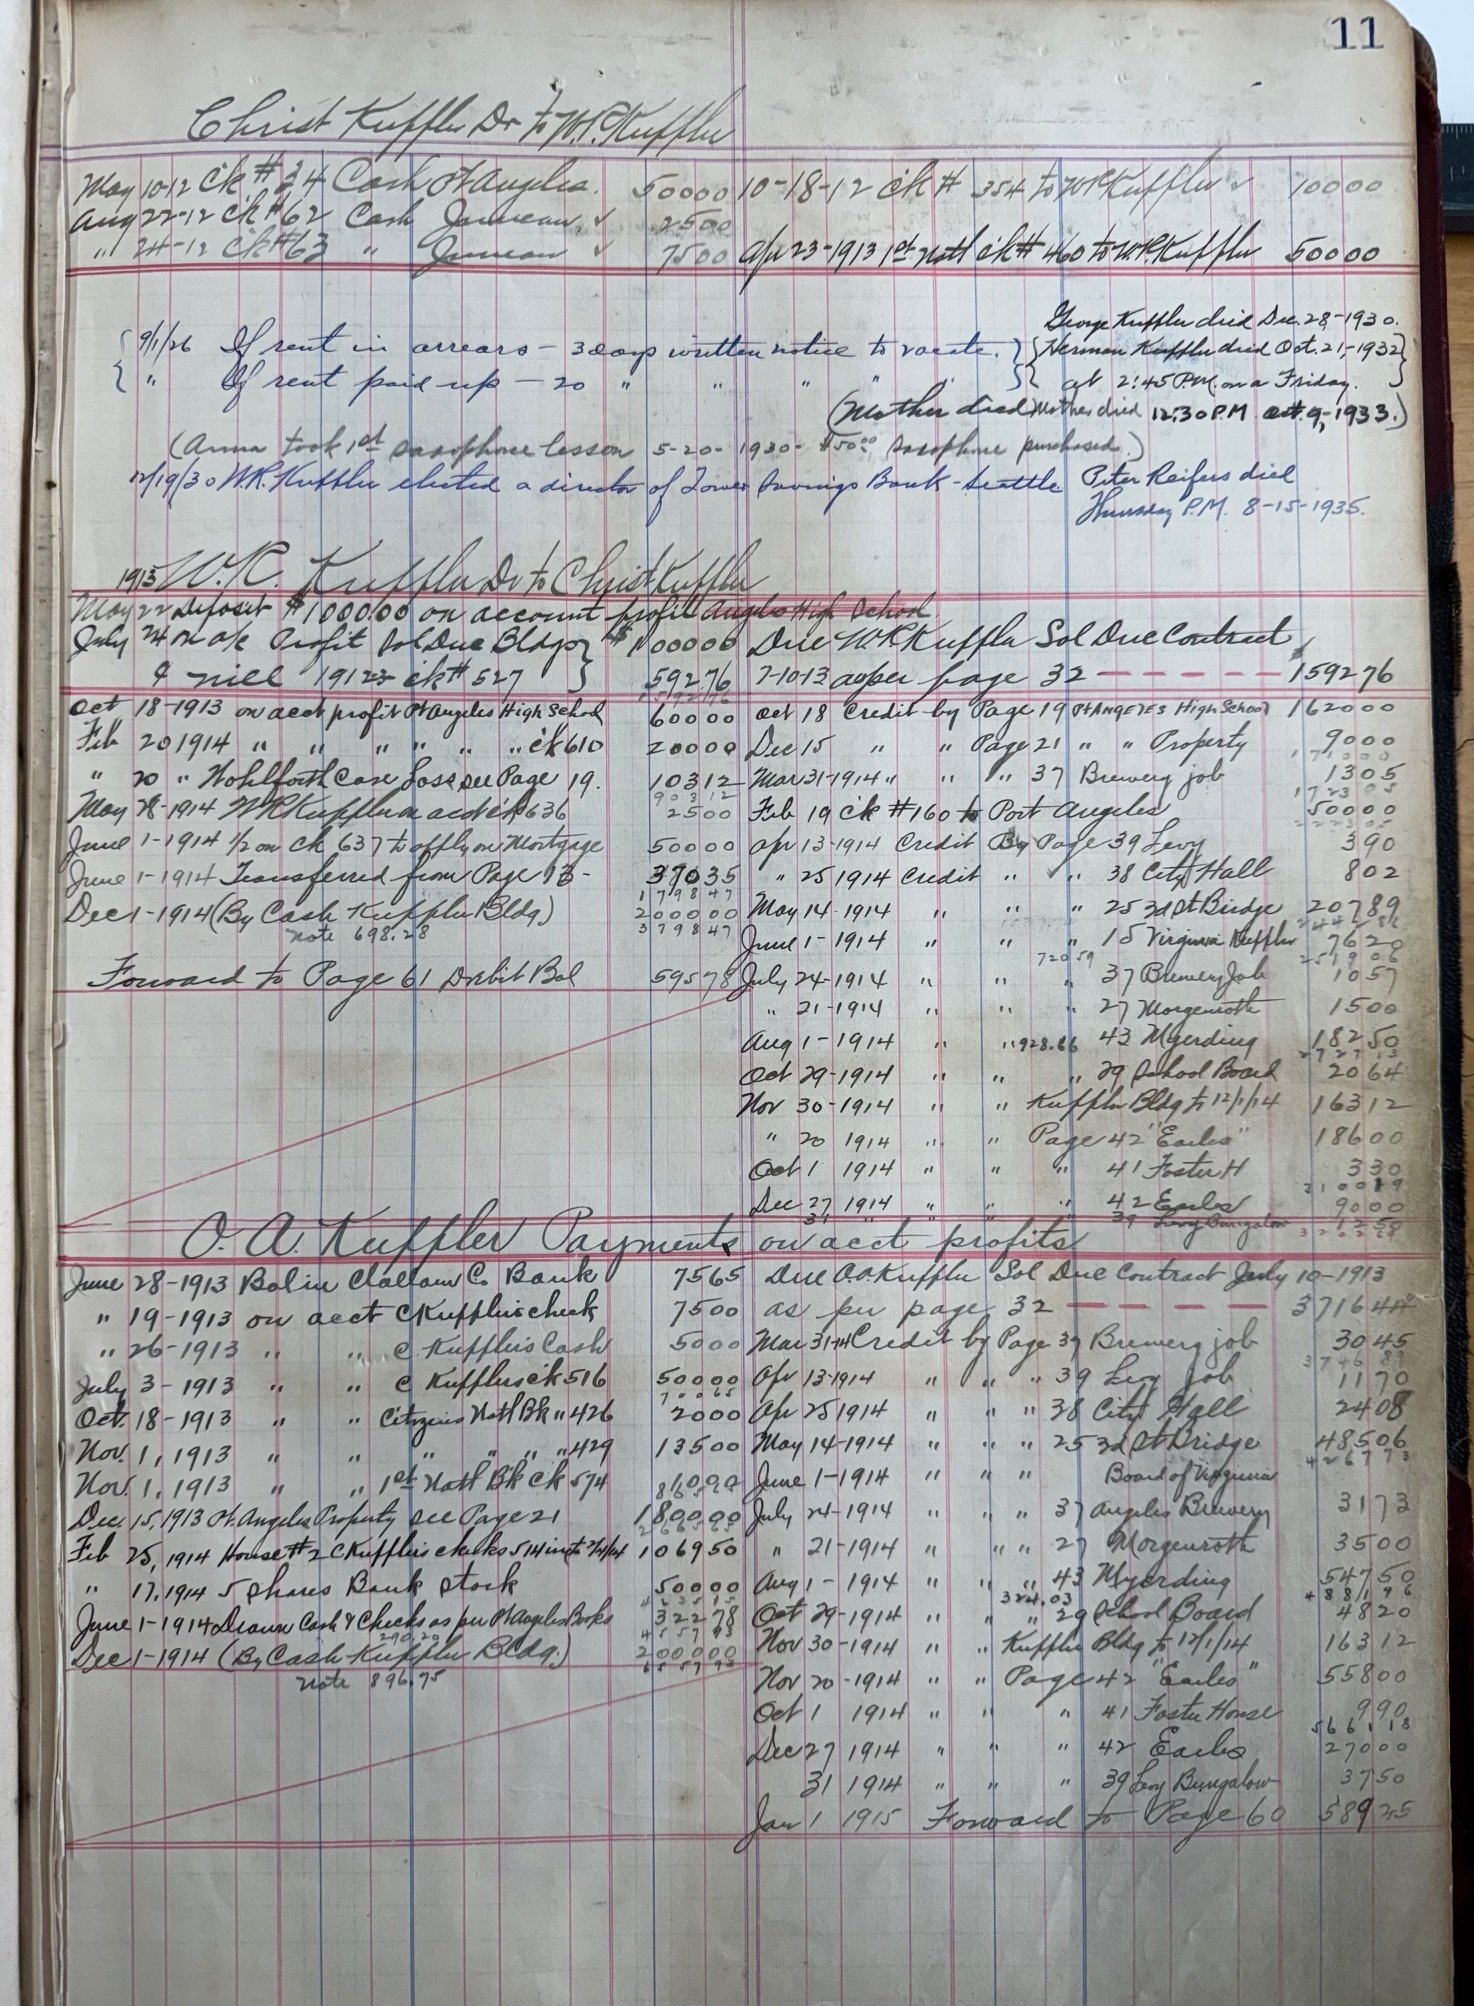 11
Christ Kuppler Dr to W.R. Kuppler
May 10-12 c'k # 34 Cash Pt Angeles. 50000 10-18-12 c'k # 354 to W.R. Kuppler ✓ 10000
Aug 22-12 c'k # 62 Cash Juneau ✓ 2500
" 24-12 c'k # 63 " Juneau ✓ 7500 Apr 23-1913 1st Natl c'k # 460 to W.R. Kuppler 50000
George Kuppler died Dec. 28-1930.
9/1/26 If rent in arrears - 3 days written notice to vacate. Herman Kuppler died Oct. 21, -1932
" If rent paid up - 20 " " " " " at 2:45 P.M. on a Friday.
(Mother died Mother died 12:30 P.M Oct. 9, -1933.)
(Anna took 1st saxophone lesson 5-20-1930- $50.00 saxophone purchased.)
12/19/30 W.R. Kuppler elected a director of Tower Savings Bank - Seattle Peter Reifers died
Thursday P.M. 8-15-1935.
1913 W.R. Kuppler Dr to Christ Kuppler
May 22 Deposit $1000.00 on account profit Angeles High School
July 24 on a/c Profit Sol Duc Bldgs $100000 Due W.R. Kuppler Sol Duc Contract
& mill 1912 c'k # 527 59276 7-10-13 as per page 32 - - - - - - 159276
159276
Oct 18-1913 on acct profit Pt Angeles High School 60000 Oct 18 Credit by Page 19 Pt ANGELES High School 162000
Feb 20 1914 " " " " " " c'k 610 20000 Dec 15 " " Page 21 " " Property 9000
171000
" 20 " Wohlforth Case Loss see Page 19. 10312 Mar 31-1914 " " " 37 Brewery job 1305
90312 172305
May 28-1914 W.R. Kuppler on acct c'k 636 2500 Feb 19 c'k #160 to Port Angeles 50000
222305
June 1-1914 1/2 on ck 637 to apply on Mortgage 50000 Apr 13-1914 Credit By Page 39 Levy 390
June 1-1914 Transferred from Page 13- 37035 " 25 1914 Credit " " 38 City Hall 802
179847
Dec 1-1914 (By Cash Kuppler Bldg.) 200000 May 14-1914 " " " 25 3d St Bridge 20789
note 698.28 379847
June 1-1914 " " " 15 Virginia Kuppler 7620
72059 251906
Forward to Page 61 Debit Bal 59578 July 24-1914 " " " 37 Brewery Job 1057
" 21-1914 " " " 27 Morgenroth 1500
Aug 1-1914 " " 928.66 43 Myerding 18250
272713
Oct 29-1914 " " " 29 School Board 2064
Nov 30-1914 " " Kuppler Bldg to 12/1/14 16312
" 20 1914 " " Page 42 "Earles" 18600
Oct 1 1914 " " " 41 Foster H 330
310019
Dec 27 1914 " " " 42 Earles 9000
31 " " " " 39 Levy Bungalow 1250
O. A. Kuppler Payments on acct profits
June 28-1913 Bal in Clallam Co Bank 7565 Due O.A. Kuppler Sol Duc Contract July 10-1913
" 19-1913 on acct C Kuppler's check 7500 as per page 32 - - - - - 371644
" 26-1913 " " C. Kuppler's Cash 5000 Mar 31-14 Credit by Page 37 Brewery job 3045
374689
July 3-1913 " " C Kuppler's c'k 516 50000 Apr 13-1914 " " " 39 Levy Job 1170
70065
Oct. 18-1913 " " Citizens Natl Bk " 426 2000 Apr 25 1914 " " " 38 City Hall 2408
Nov. 1, 1913 " " " " " " 429 13500 May 14-1914 " " " 25 3d St Bridge 48506
426773
Nov. 1, 1913 " " 1st Natl Bk c'k 574 June 1-1914 " " " Board of Virginia
Dec. 15, 1913 Pt. Angeles Property see Page 21 180000 July 24-1914 " " " 37 Angeles Brewery 3173
Feb 25, 1914 House # 2 C Kuppler's checks 514 106950 " 21-1914 " " " 27 Morgenroth 3500
" 17, 1914 5 shares Bank stock 50000 Aug 1-1914 " " " 43 Myerding 54750
324.03 488196
June 1-1914 Drawn Cash & Checks as per Pt Angeles Books 32278 Oct 29-1914 " " " 29 School Board 4820
290.20 455793
Dec 1-1914 (By Cash Kuppler Bldg.) 200000 Nov 30-1914 " " Kuppler Bldg to 12/1/14 16312
655793
note 896.75 Nov 20-1914 " " Page 42 "Earles" 55800
Oct 1 1914 " " " 41 Foster House 990
566118
Dec 27 1914 " " " 42 Earles 27000
31 1914 " " " 39 Levy Bungalow 3750
Jan 1 1915 Forward to Page 60 58925